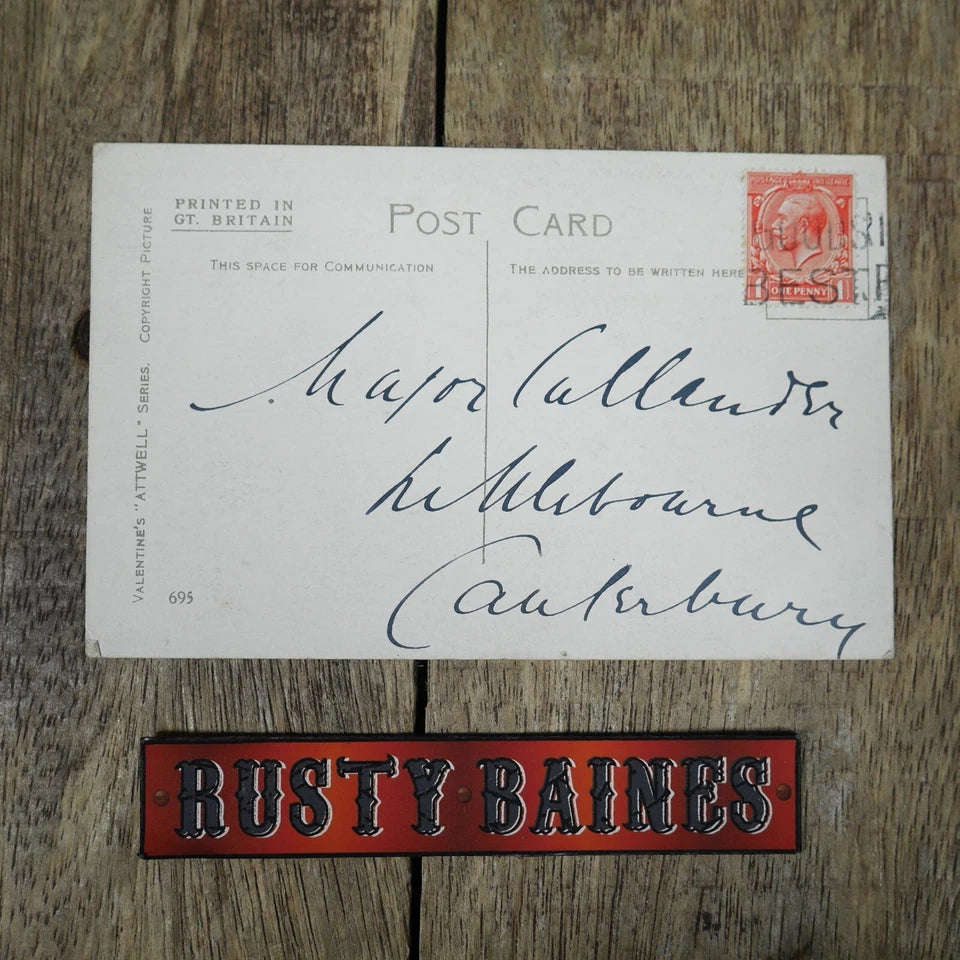 PRINTED IN
GT. BRITAIN
POST CARD
THIS SPACE FOR COMMUNICATION
THE ADDRESS TO BE WRITTEN HERE
POSTAGE REVENUE
ONE PENNY
1 1
BEST
Major Callander
Littlebourne
Canterbury
VALENTINE'S "ATTWELL" SERIES. COPYRIGHT PICTURE
695
RUSTY BAINES